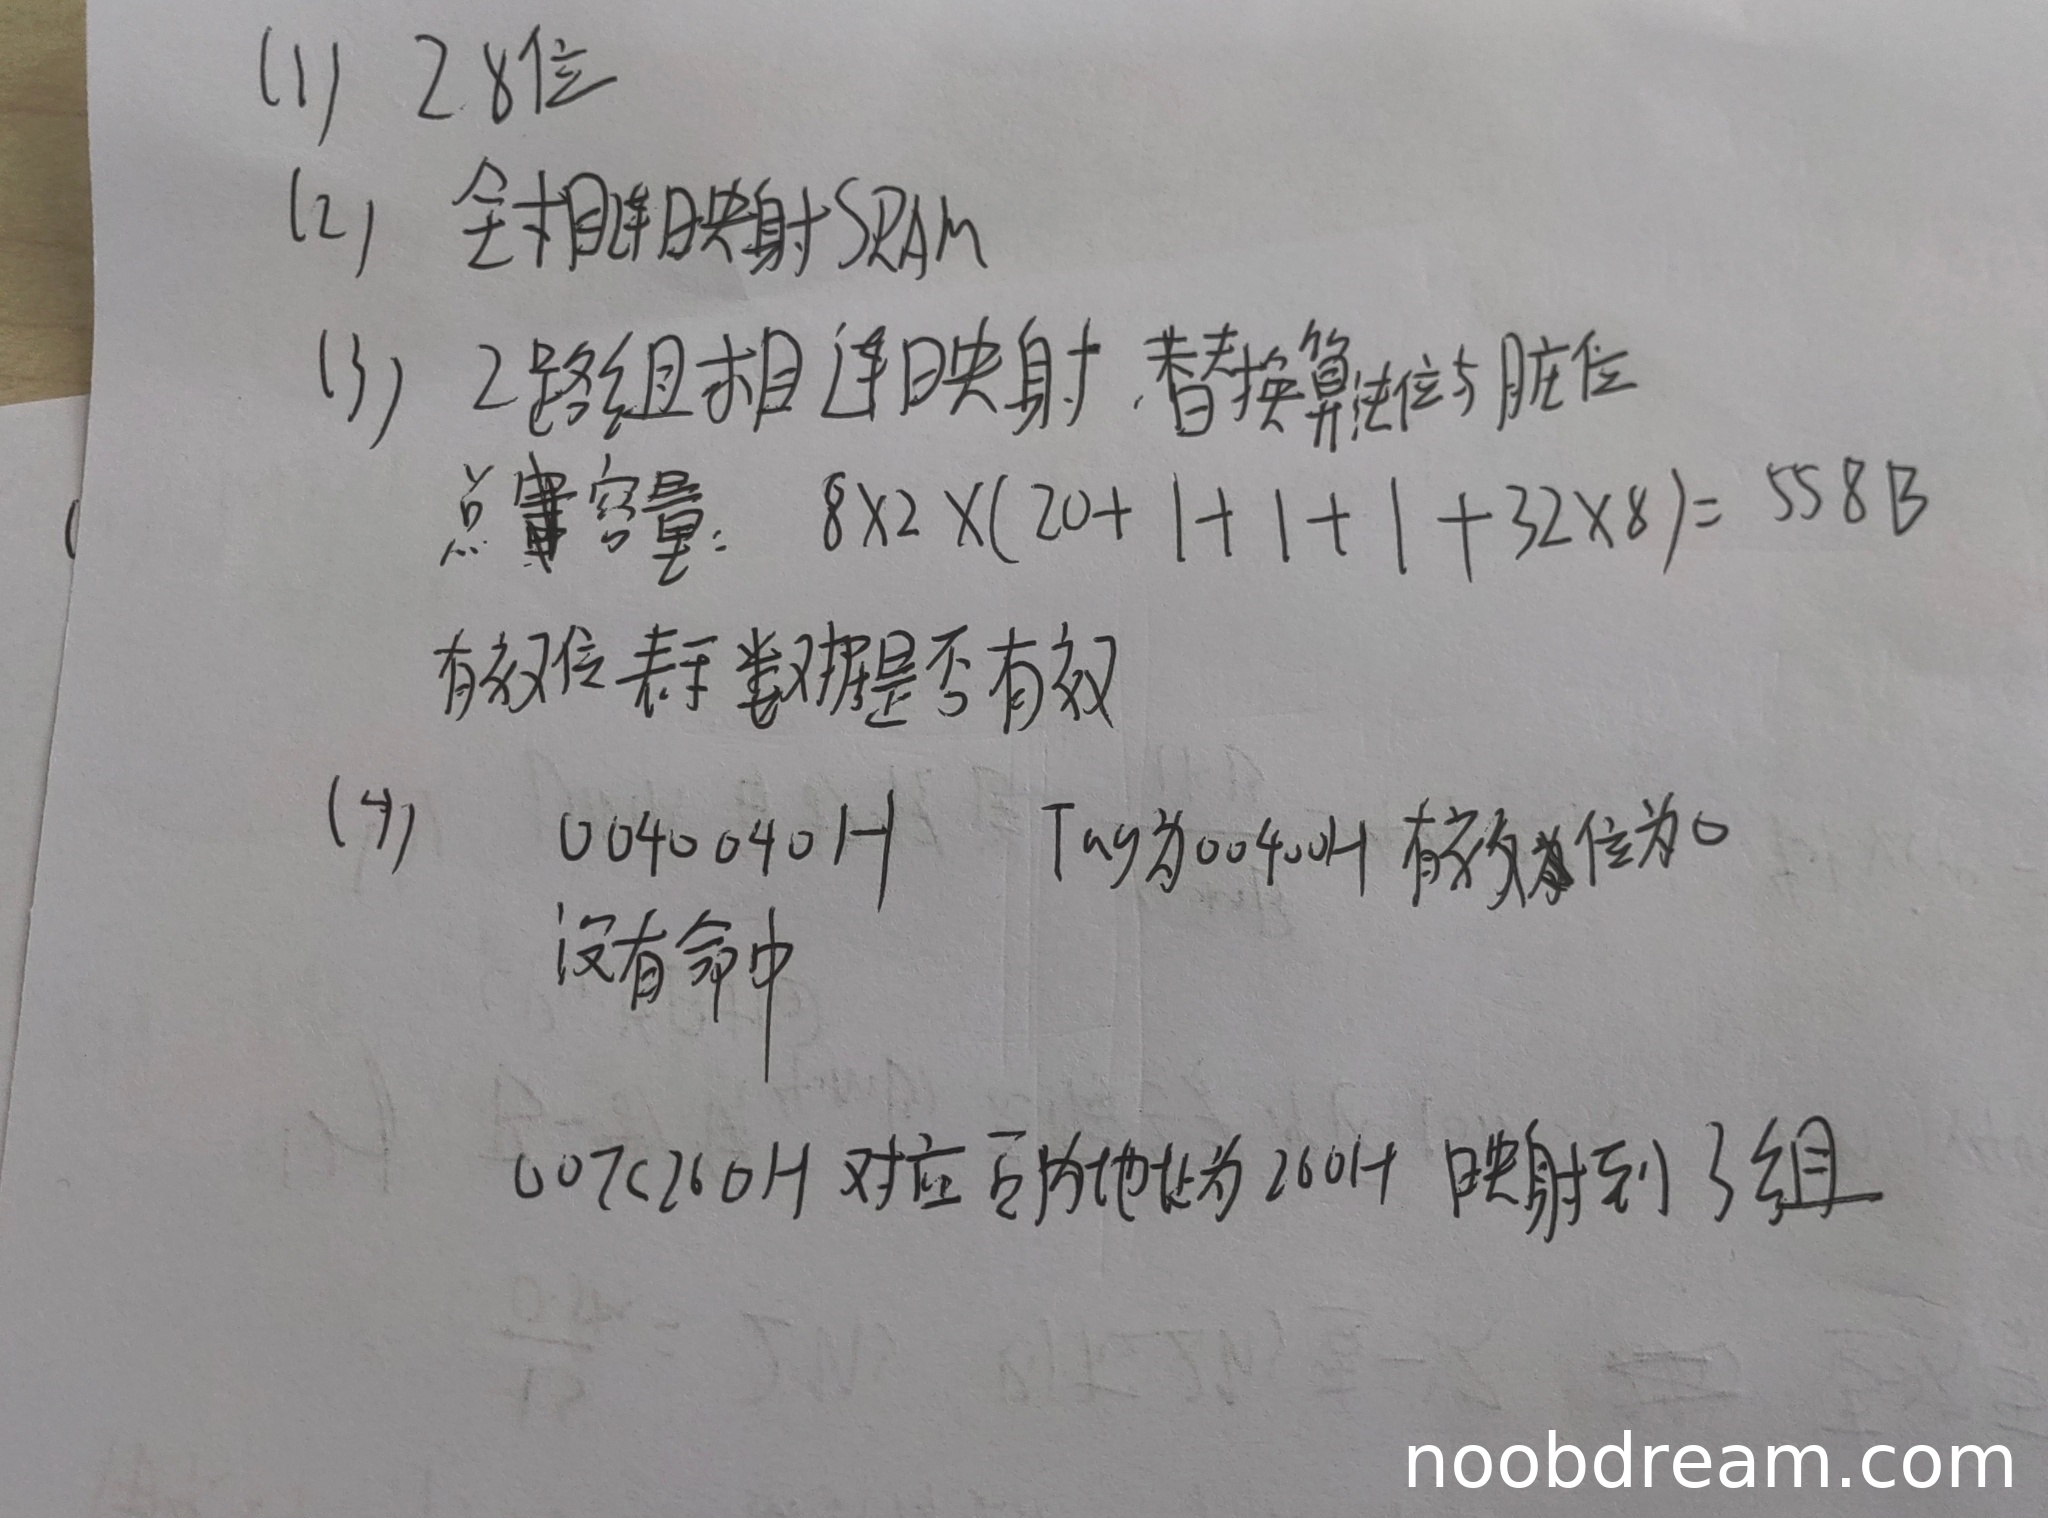 (1) 28位
(2) 全相连映射SRAM
(3) 2路组相连映射.替换算法位与脏位
总容量: 8X2X(20+1+1+1+32X8)=558B
有效位表示数据是否有效
(4) 0040040H Tag为00400H有效位为0
没有命中
007C260H对应页内地址为260H 映射到3组
noobdream.com